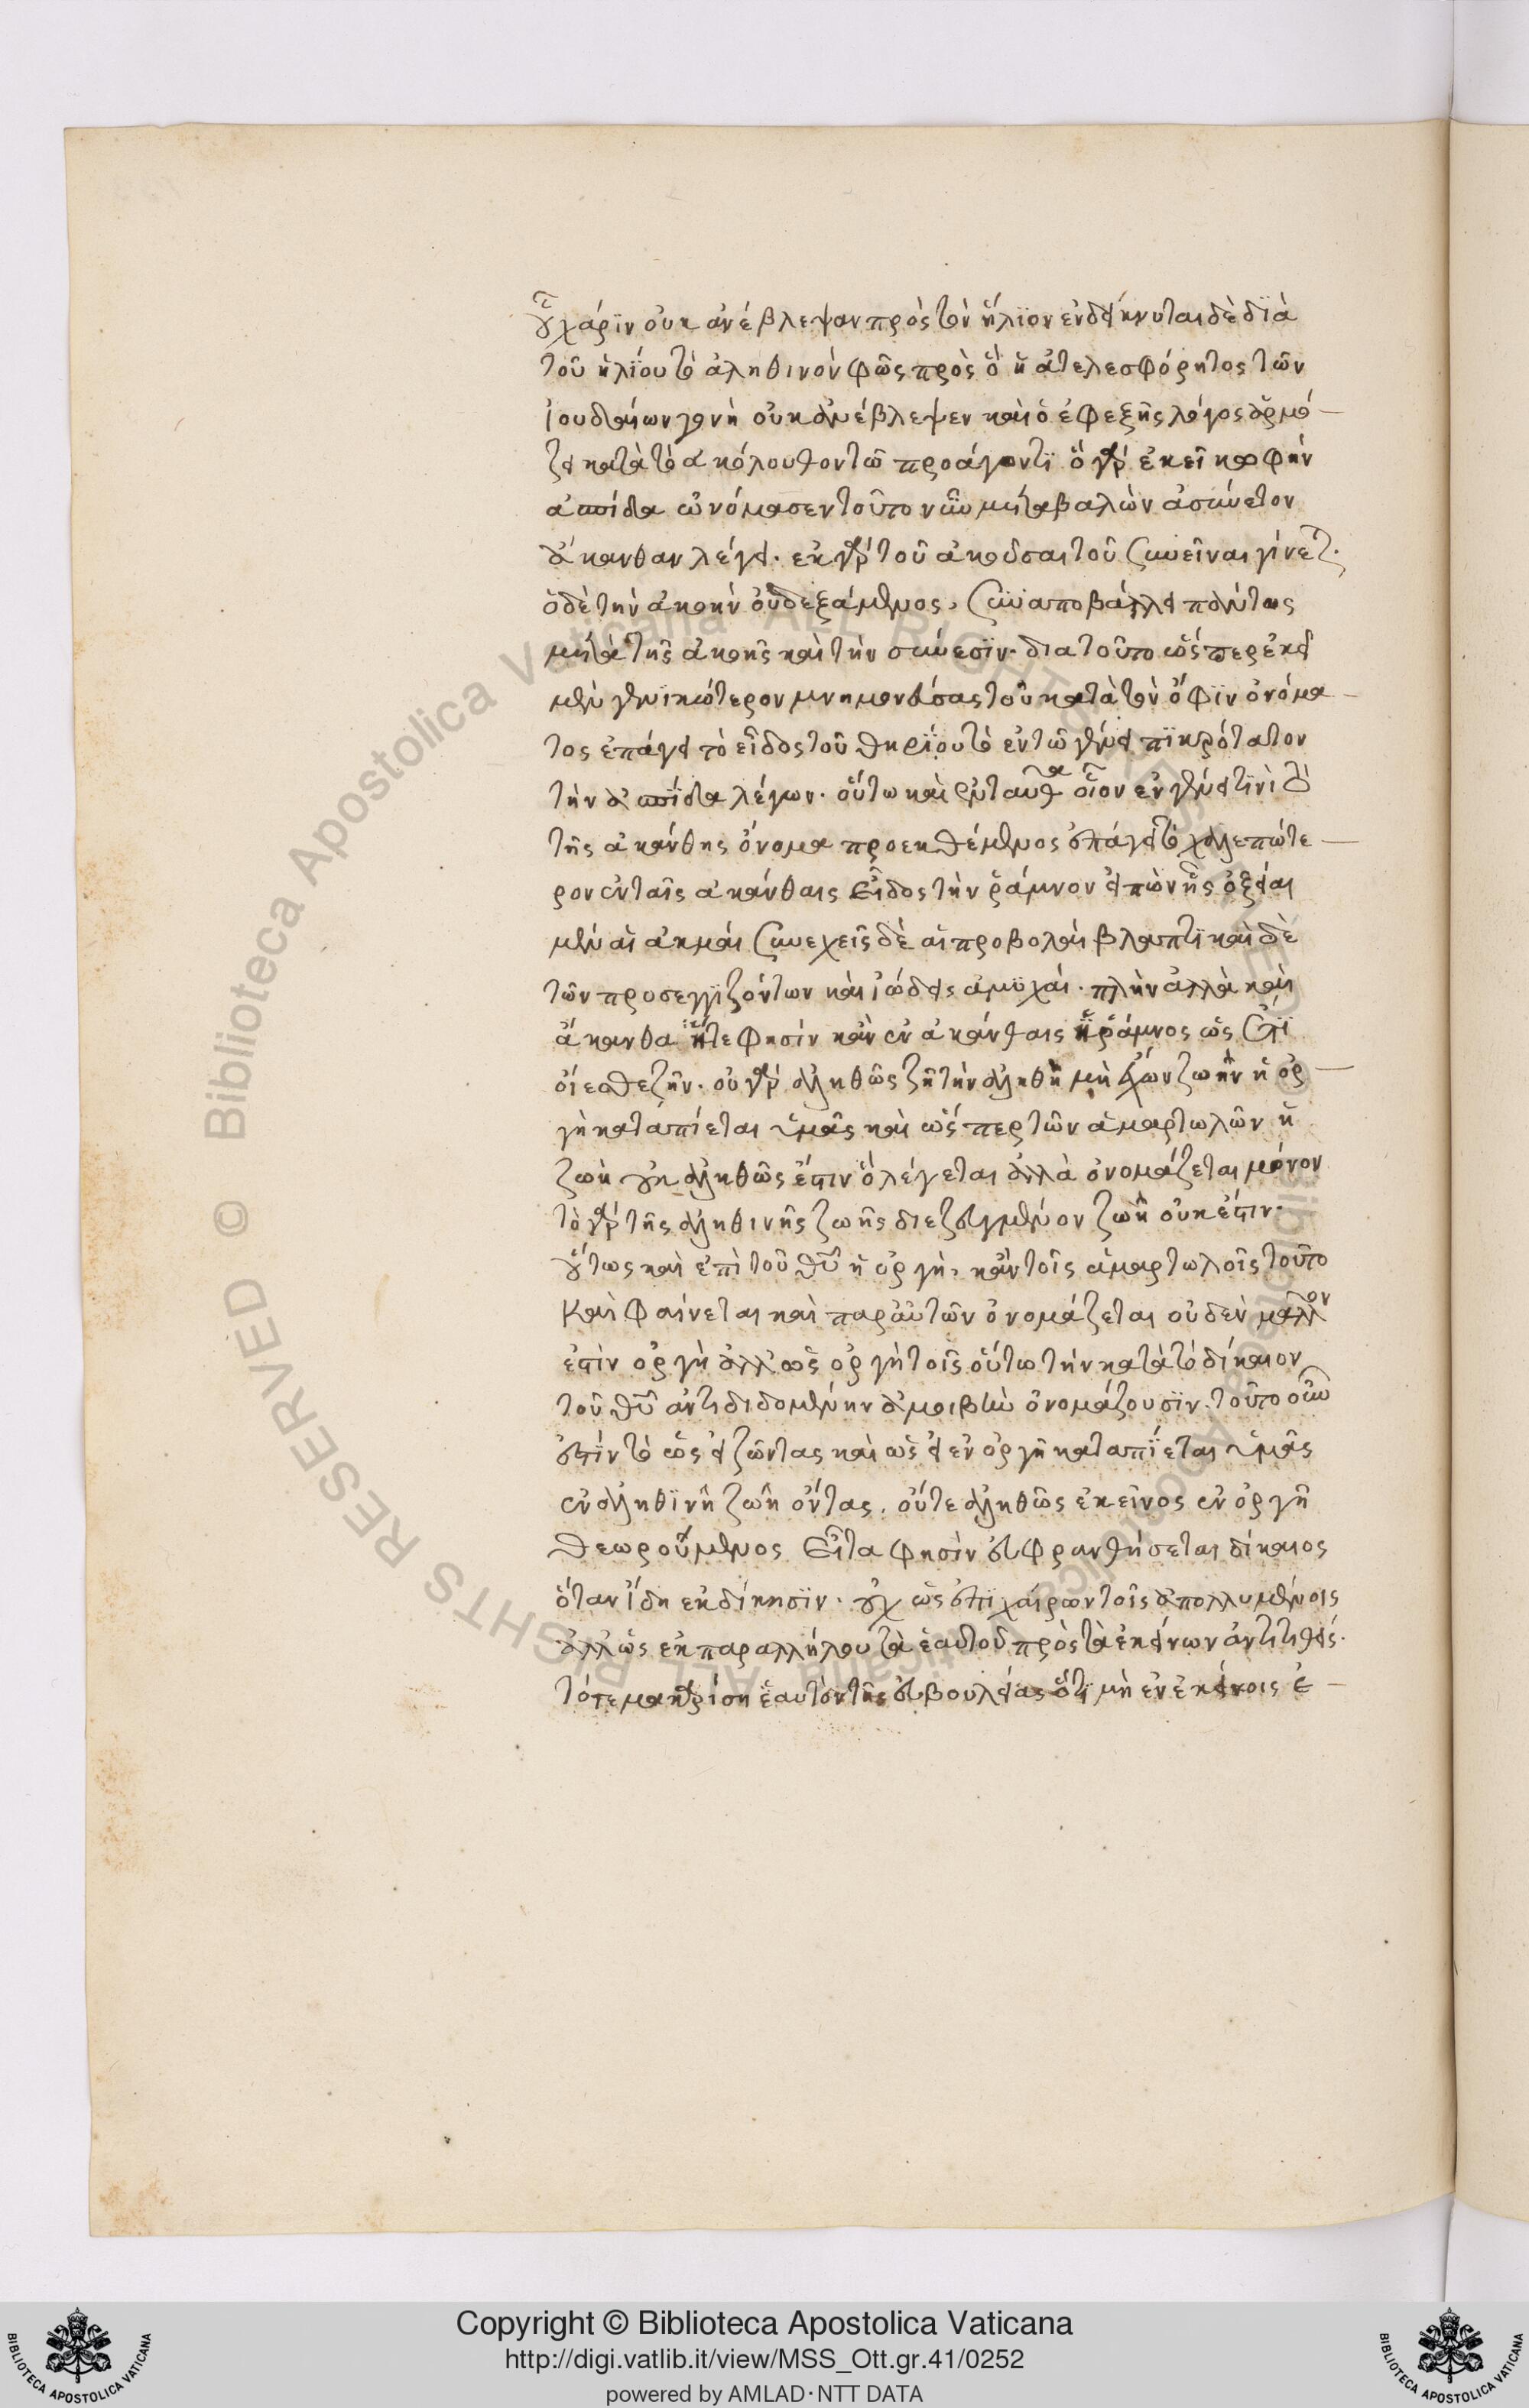 οὗ χάριν οὐκ ἀνέβλεψαν πρὸς τὸν ἥλιον ἐνδείκνυται δὲ διὰ
τοῦ ἡλίου τὸ ἀληθινὸν φῶς πρὸς ὃ ἡ ἀτελεσφόρητος τῶν
ἰουδαίων γονὴ οὐκ ἀνέβλεψεν καὶ ὁ ἐφεξῆς λόγος ἁρμό
ζει κατὰ τὸ ἀκόλουθον τῶ προάγοντι ὃ γὰρ ἐκεῖ κωφὴν
ἀσπίδα ὠνόμασεν τοῦτο νῦν μεταβαλὼν ἀσύνετον
ἄκανθαν λέγει. ἐκ γὰρ τοῦ ἀκοῦσαι τοῦ συνεῖναι γίνετ.
ὁ δὲ τὴν ἀκοὴν οὐ δεξάμενος, συναποβάλλει πάντως
μετὰ τῆς ἀκοῆς καὶ τὴν σύνεσιν. διατοῦτο ὥσπερ ἐκεῖ
μὲν γενικώτερον μνημονεύσας τοῦ κατὰ τὸν ὄφιν ὀνόμα
τος ἐπάγει τὸ εἶδος τοῦ θηρίου τὸ ἐν τῶ γένει πικρότατον
τὴν ἀσπίδα λέγων. οὕτω καὶ ἐνταῦθα οἷον ἐν γένει τινὶ τὸ
τῆς ἀκάνθης ὄνομα προεκθέμενος ἐπάγει τὸ χαλεπώτε
ρον ἐν ταῖς ἀκάνθαις εἶδος τὴν ῥάμνον εἰπὼν ἧς ὀξεῖαι
μὲν αἱ ἀκμαὶ συνεχεῖς δὲ αἱ προβολαὶ βλαπτι καὶ δὲ
τῶν προσεγγιζόντων καὶ ἰώδεις ἀμυχαί. πλὴν ἀλλὰ καὶ
ἄκανθα ἦτε φησὶν κἂν ἐν ἀκάνθαις ἡ ῥάμνος ὡς ἔτι
οἴεσθε ζῆν. οὐ γὰρ ἀληθῶς ζῆ τὴν ἀληθῆ μὴ ἔχων ζωὴν ἡ ὀρ
γὴ καταπίεται ὑμᾶς καὶ ὥσπερ τῶν ἁμαρτωλῶν ἡ
ζωὴ οὐκ ἀληθῶς ἔστιν ὃ λέγεται ἀλλὰ ὀνομάζεται μόνον
τὸ γὰρ τῆς ἀληθινῆς ζωῆς διεζευγμένον ζωὴ οὐκ ἔστιν.
οὕτως καὶ ἐπὶ τοῦ θῦ ἡ ὀργὴ, κἂν τοῖς ἁμαρτωλοῖς τοῦτο
καὶ φαίνεται καὶ παρ αὐτῶν ὀνομάζεται οὐδὲν μᾶλλον
ἐστὶν ὀργὴ ἀλλ ὡς ὀργὴ τοῖς οὕτω τὴν κατὰ τὸ δίκαιον
τοῦ θῦ ἀντιδιδομένην ἀμοιβὴν ὀνομάζουσιν. τοῦτο οὖν
ἐστὶν τὸ ὡς εἰ ζῶντας καὶ ὡς εἰ ἐν ὀργῆ καταπίεται ὑμᾶς
ἐν ἀληθινῆ ζωῆ ὄντας. οὔτε ἀληθῶς ἐκεῖνος ἐν ὀργῆ
θεωρούμενος εἶτα φησὶν εὐφρανθήσεται δίκαιος
ὅταν ἴδη ἐκδίκησιν. οὐχ ὡς ἐπιχαίρων τοῖς ἀπολλυμένοις
ἀλλ ὡς ἐκ παραλλήλου τὰ ἑαυτοῦ πρὸς τὰ ἐκείνων ἀντιτιθείς.
τότε μακαρίση ἑαυτὸν τῆς εὐβουλίας ὅτι μὴ ἐν ἐκείνοις ἐ
Copyright © Biblioteca Apostolica Vaticana
http://digi.vatlib.it/view/MSS_Ott.gr.41/0252
powered by AMLAD·NTT DATA
BIBLIOTECA APOSTOLICA VATICANA
BIBLIOTECA APOSTOLICA VATICANA
Biblioteca Apostolica Vaticana ALL RIGHTS RESERVED ©
Biblioteca Apostolica Vaticana ALL RIGHTS RESERVED ©